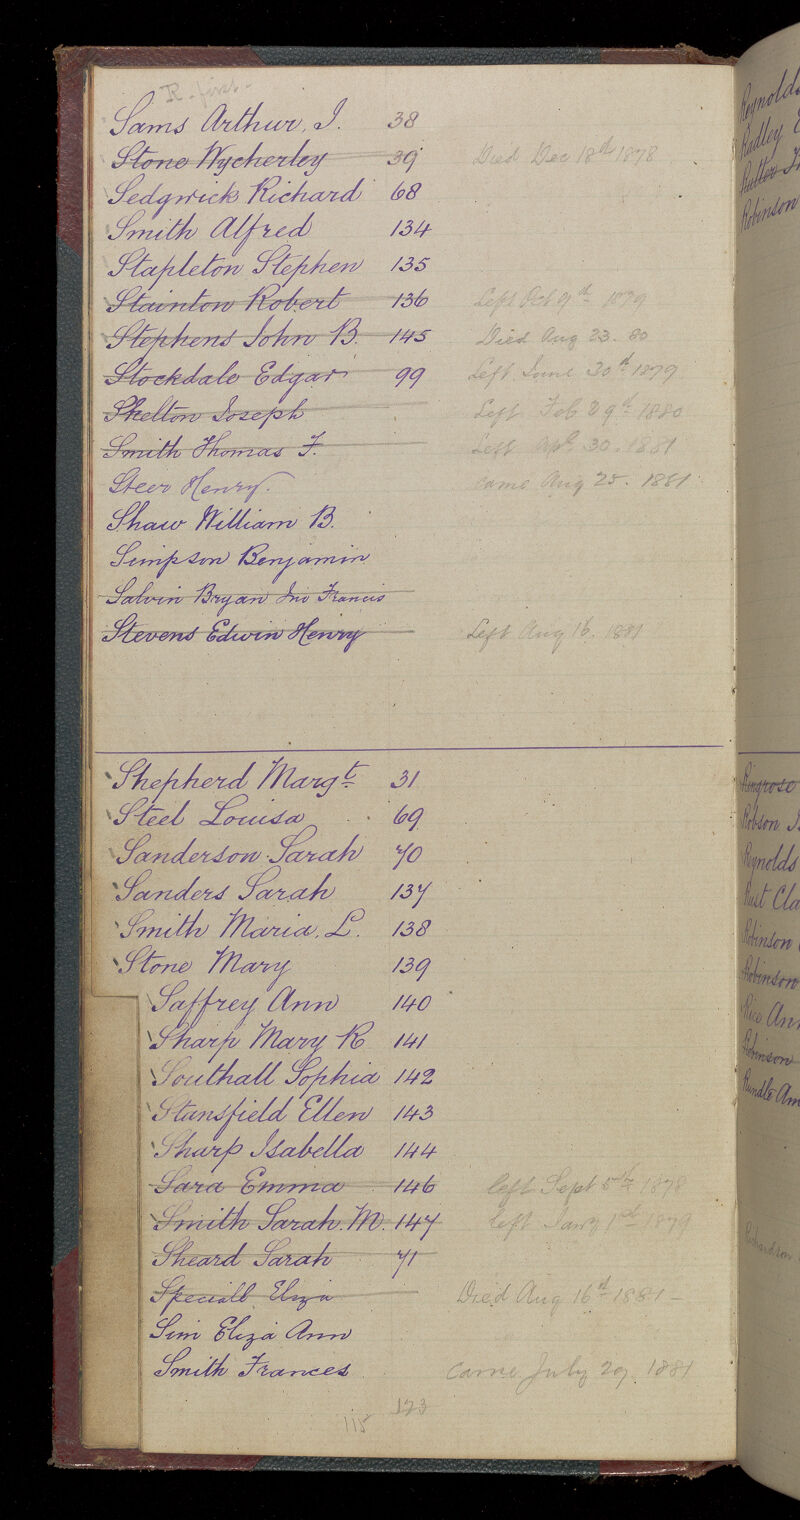 R. first
Sams Arthur. J. 38
Stone Wycherley 39 Died Dec 18th 1878
Sedgwick Richard 68
Smith Alfred 134
Stapleton Stephen 135
Stainton Robert 136 Left Oct 9th 1879
Stephens John B. 145 Died Aug 23. 80
Stockdale Edgar 99 Left June 30th 1879
Skelton Joseph Left Feb 29th 1880
Smith Thomas F. Left Apl 30. 1881
Steer Henry. came Aug 25. 1881
Shaw William B.
Simpson Benjamin
Salvin Bryan Jno Francis
Stevens Edwin Henry Left Aug 16. 1881
Shepherd Margt. 31
Steel Louisa 69
Sanderson Sarah 70
Sanders Sarah 137
Smith Maria. L. 138
Stone Mary 139
Saffrey Ann 140
Sharp Mary R 141
Southall Sophia 142
Stansfield Ellen 143
Sharp Isabella 144
Sara Emma 146 left Sept 5th 1878
Smith Sarah. M. 147 left Jany 1st 1879
Sheard Sarah 71
Speciall Eliza Died Aug 16th 1881
Sim Eliza Ann
Smith Frances came July 29 1881
115 123
Reynolds
Radley
Rutter
Robinson
Ringrose
Robson
Reynolds
Rust Cla
Robinson
Robinson
Rice Ann
Robinson
Rundle Am
Richardson